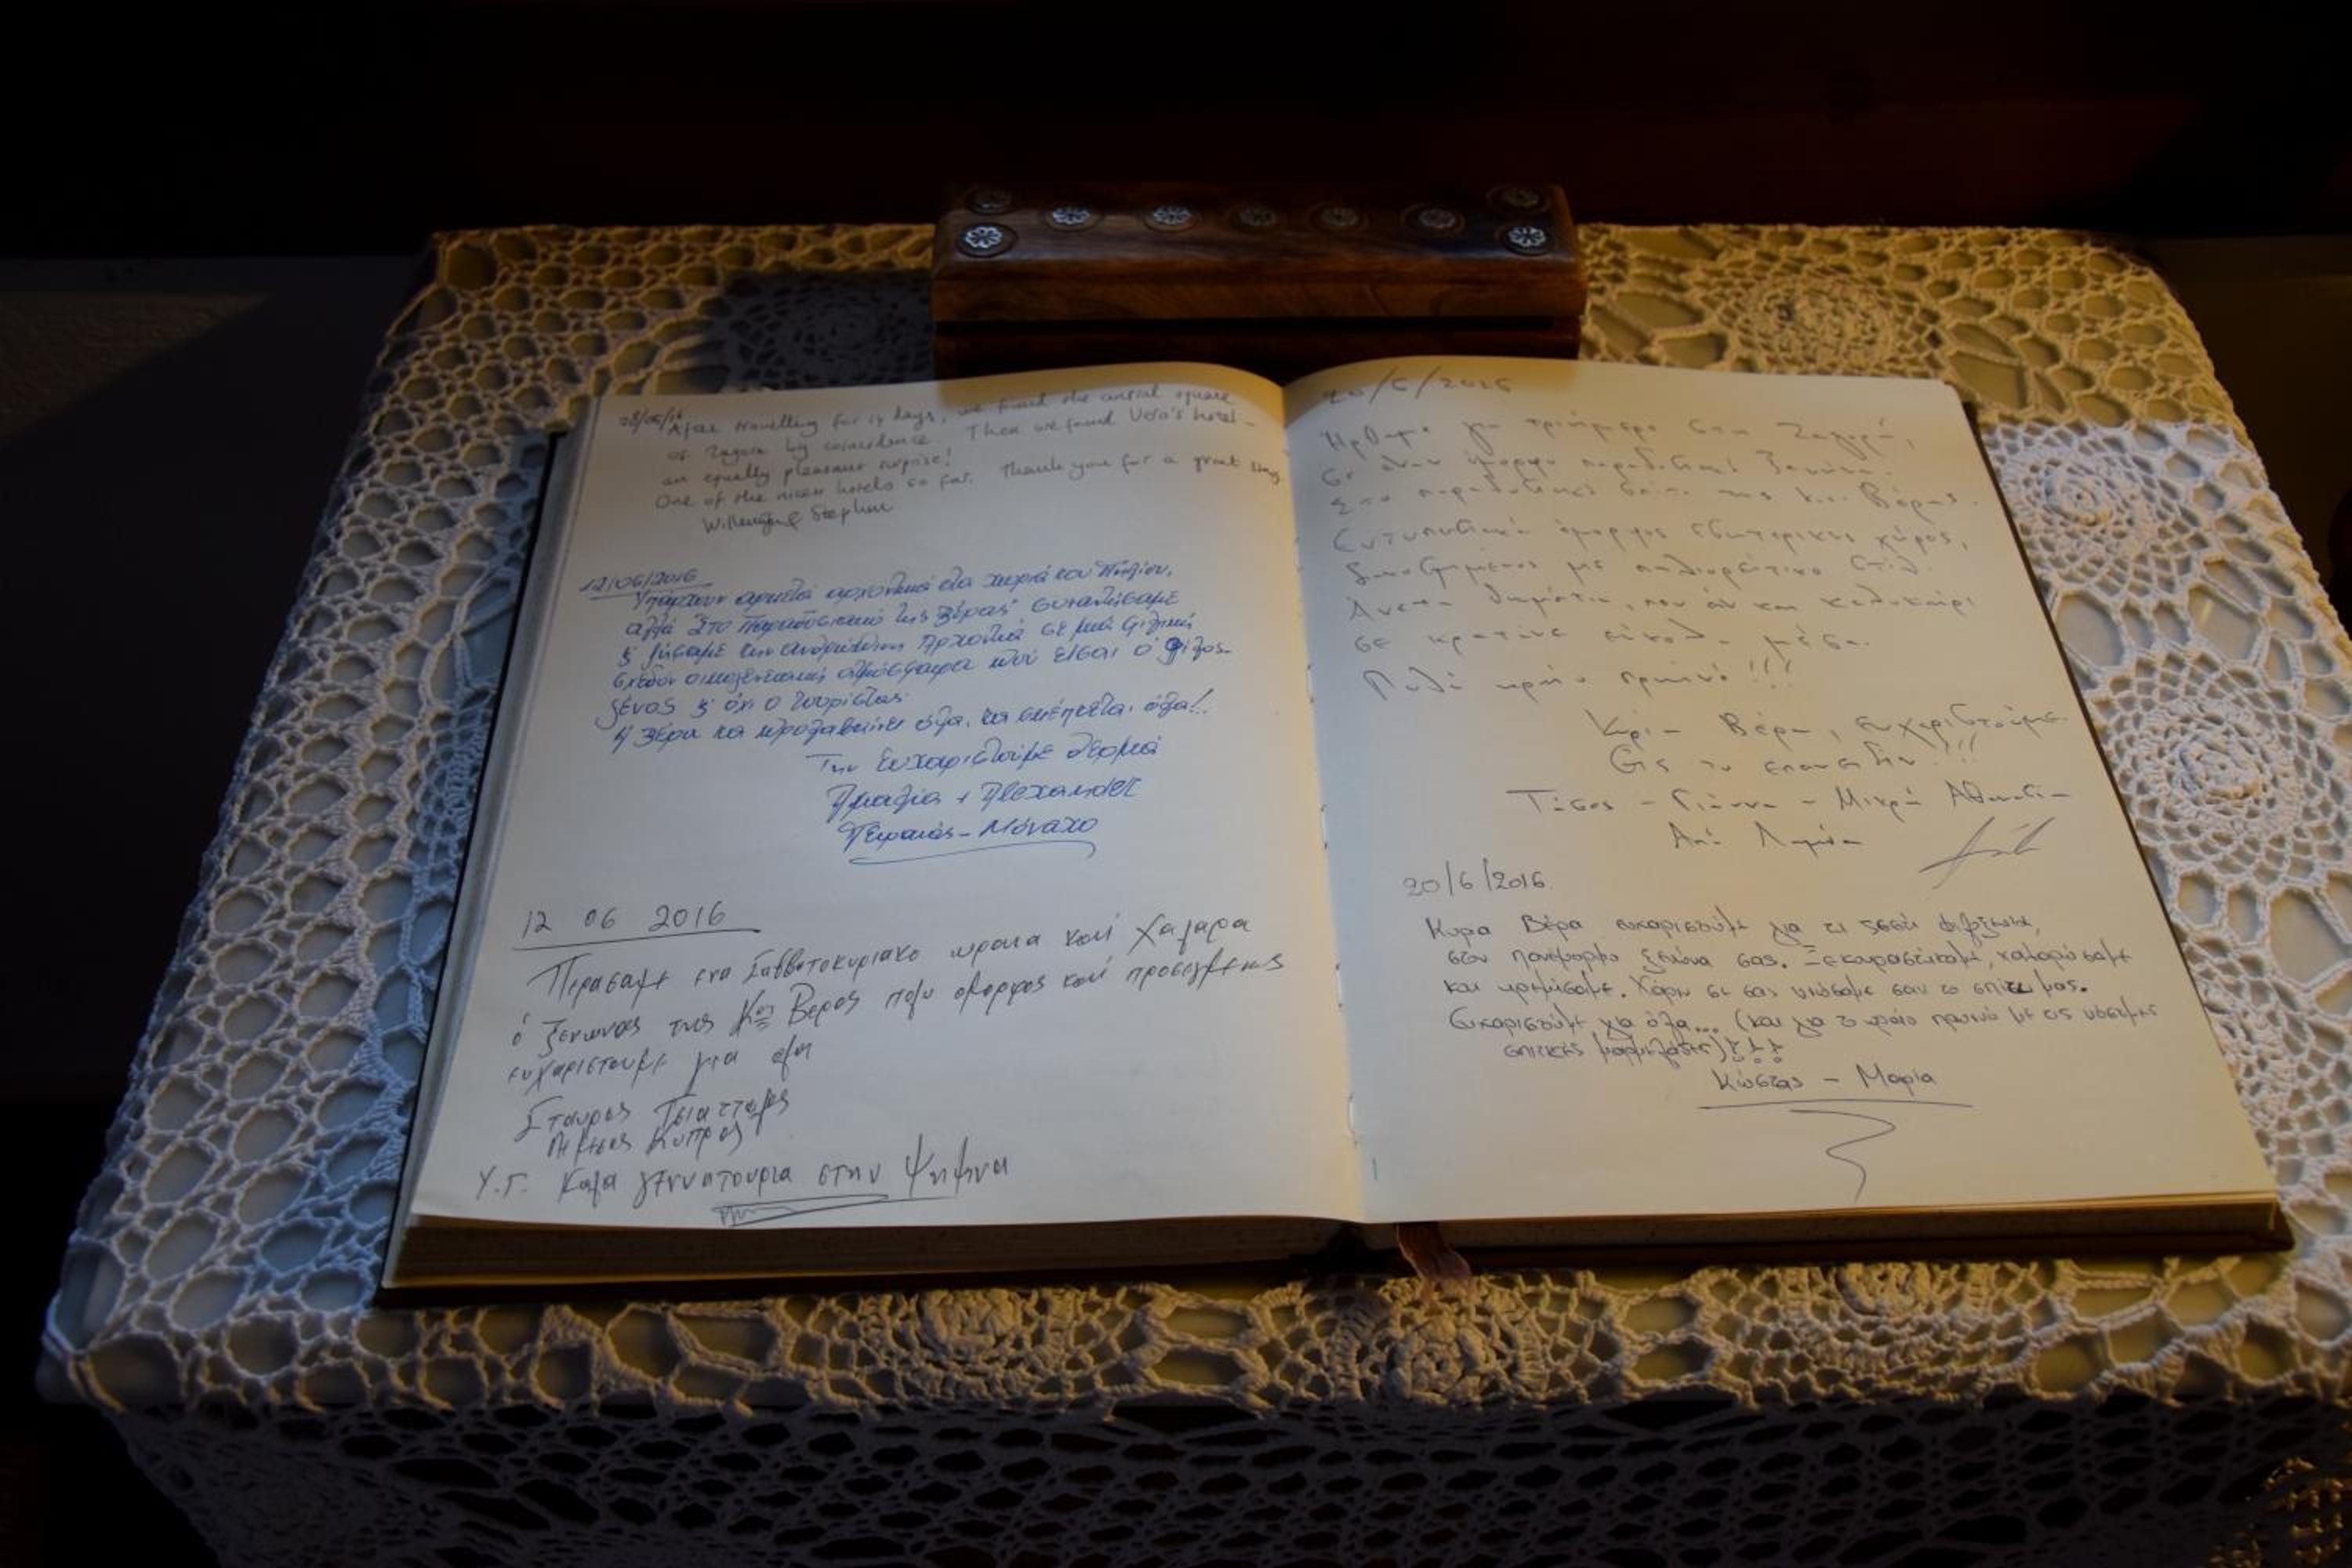 28/05/16 After travelling for 14 days, we found the central square
of Zagora by coincidence. Then we found Vera's hotel -
an equally pleasant surprise!
One of the nicest hotels so far. Thank you for a great stay,
& Stephen
12/06/2016
Υπάρχουν αρκετά αρχοντικά στα χωριά του Πηλίου,
αλλά στο της Βέρας συναντήσαμε
& ζήσαμε την ανθρώπινη αρχοντιά σε μια φιλική
σχεδόν οικογενειακή ατμόσφαιρα που είσαι ο φίλος-
ξένος & όχι ο τουρίστας.
Η Βέρα τα προλαβαίνει όλα, τα σκέπτεται όλα!
Την ευχαριστούμε θερμά
Αμαλία + Alexander
Πειραιάς - Μόναχο
12 06 2016
Περασαμε ενα Σαββατοκυριακο ωραια και χαλαρα
ό ξενωνας της Κας Βερας πολυ ομορφος και προσεγμενος
ευχαριστουμε για ολα
Σταυρος
Κυπρος
Υ.Γ. Καλα γεννητουρια στην
20/6/2016
Ήρθαμε για τριήμερο στη Ζαγορά,
σε έναν όμορφο παραδοσιακό ξενώνα.
Στο παραδοσιακό σπίτι της κας Βέρας.
Εντυπωσιακά όμορφος εσωτερικός χώρος,
διακοσμημένος με παλιομοδίτικο στιλ.
Άνετα δωμάτια, που αν και καλοκαίρι
σε κρατάνε εύκολα μέσα.
Πολύ ωραίο πρωινό!!!
Κυρία Βέρα, ευχαριστούμε.
Εις το επανιδείν!!!
Τάσος - Γιάννα - Μικρή Αθανασία
Από Λαμία
20/6/2016
Κυρα Βέρα ευχαριστούμε για τη ζεστή φιλοξενία,
στον πανέμορφο ξενώνα σας. Ξεκουραστήκαμε, χαλαρώσαμε
και ηρεμήσαμε. Χάρη σε σας νιώσαμε σαν το σπίτι μας.
Ευχαριστούμε για όλα... (και για το ωραίο πρωινό με τις νόστιμες
σπιτικές μαρμελάδες)!!!
Κώστας - Μαρία